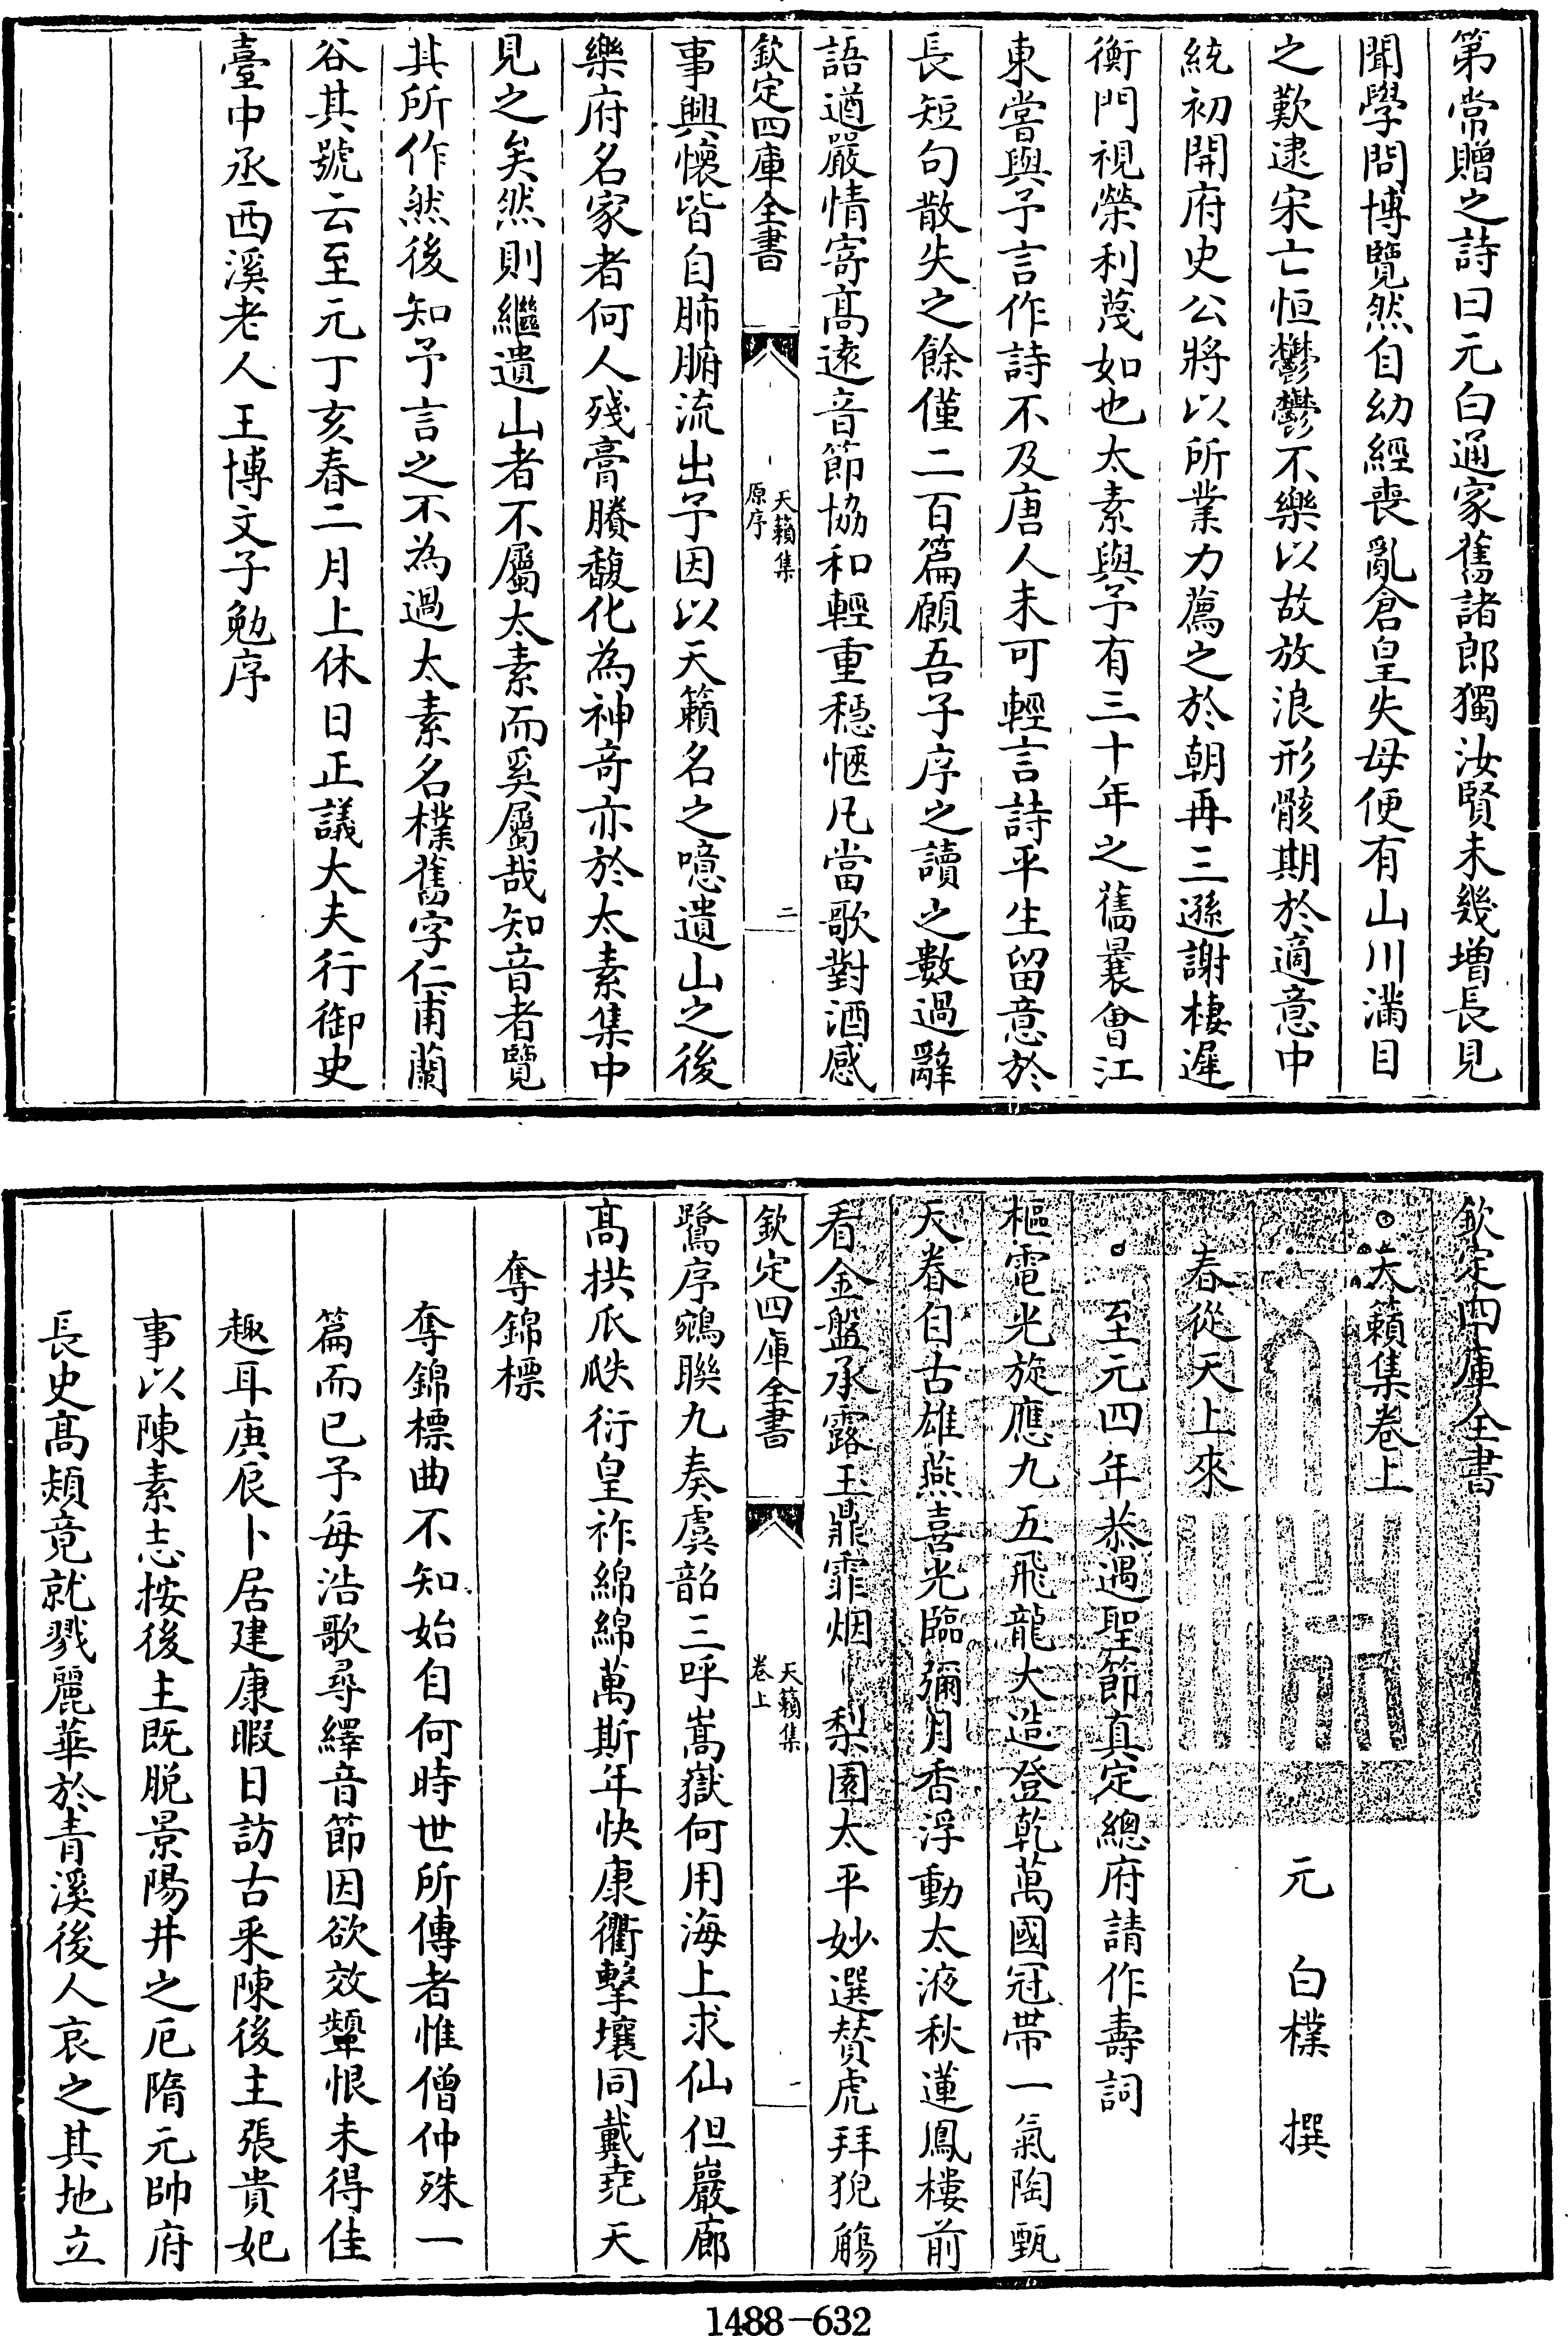 第常贈之詩曰元白通家舊諸郎獨汝賢未幾增長見
聞學問博覽然自幼經喪亂倉皇失母便有山川滿目
之歎逮宋亡恒鬱鬱不樂以故放浪形骸期於適意中
統初開府史公將以所業力薦之於朝再三遜謝棲遲
衡門視榮利蔑如也太素與予有三十年之舊曩會江
東嘗與予言作詩不及唐人未可輕言詩平生留意於
長短句散失之餘僅二百篇願吾子序之讀之數過辭
語遒嚴情寄高遠音節協和輕重穩愜凡當歌對酒感
欽定四庫全書
天籟集
原序
二
事興懷皆自肺腑流出予因以天籟名之噫遺山之後
樂府名家者何人殘膏賸馥化為神奇亦於太素集中
見之矣然則繼遺山者不屬太素而奚屬哉知音者覽
其所作然後知予言之不為過太素名樸舊字仁甫蘭
谷其號云至元丁亥春二月上休日正議大夫行御史
臺中丞西溪老人王博文子勉序
欽定四庫全書
天籟集卷上
元 白樸 撰
春從天上來
至元四年恭遇聖節真定總府請作壽詞
樞電光旋應九五飛龍大造登乾萬國冠帶一氣陶甄
天眷自古雄燕喜光臨彌月香浮動太液秋蓮鳳樓前
看金盤承露玉鼎霏烟 梨園太平妙選贊虎拜猊觴
欽定四庫全書
天籟集
卷上
一
鷺序鵷聯九奏虞韶三呼嵩嶽何用海上求仙但巖廊
高拱瓜瓞衍皇祚綿綿萬斯年快康衢擊壤同戴堯天
奪錦標
奪錦標曲不知始自何時世所傳者惟僧仲殊一
篇而已予每浩歌尋繹音節因欲效顰恨未得佳
趣耳庚辰卜居建康暇日訪古采陳後主張貴妃
事以陳素志按後主既脫景陽井之厄隋元帥府
長史高熲竟就戮麗華於青溪後人哀之其地立
1488-632